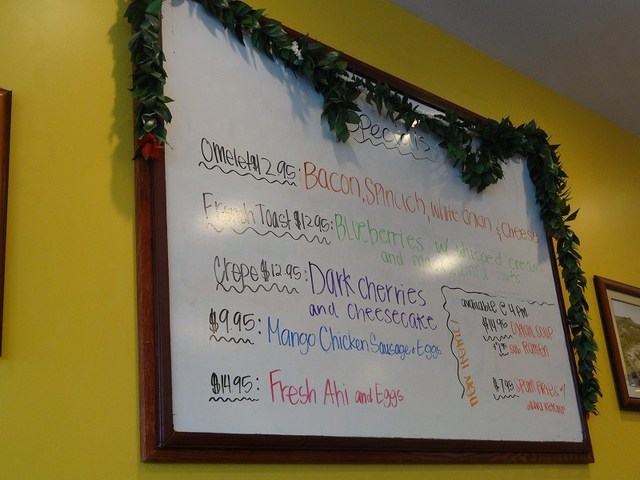 Specials
Omelet $12.95: Bacon, Spinach, White Onion & Cheese
French Toast $12.95: Blueberries w/ whipped cream
and
Crepe $12.95: Dark cherries
and cheesecake
$9.95: Mango Chicken Sausage & Eggs
$14.95: Fresh Ahi and Eggs
available @ 4pm
$14.95
Ramen
$7.95